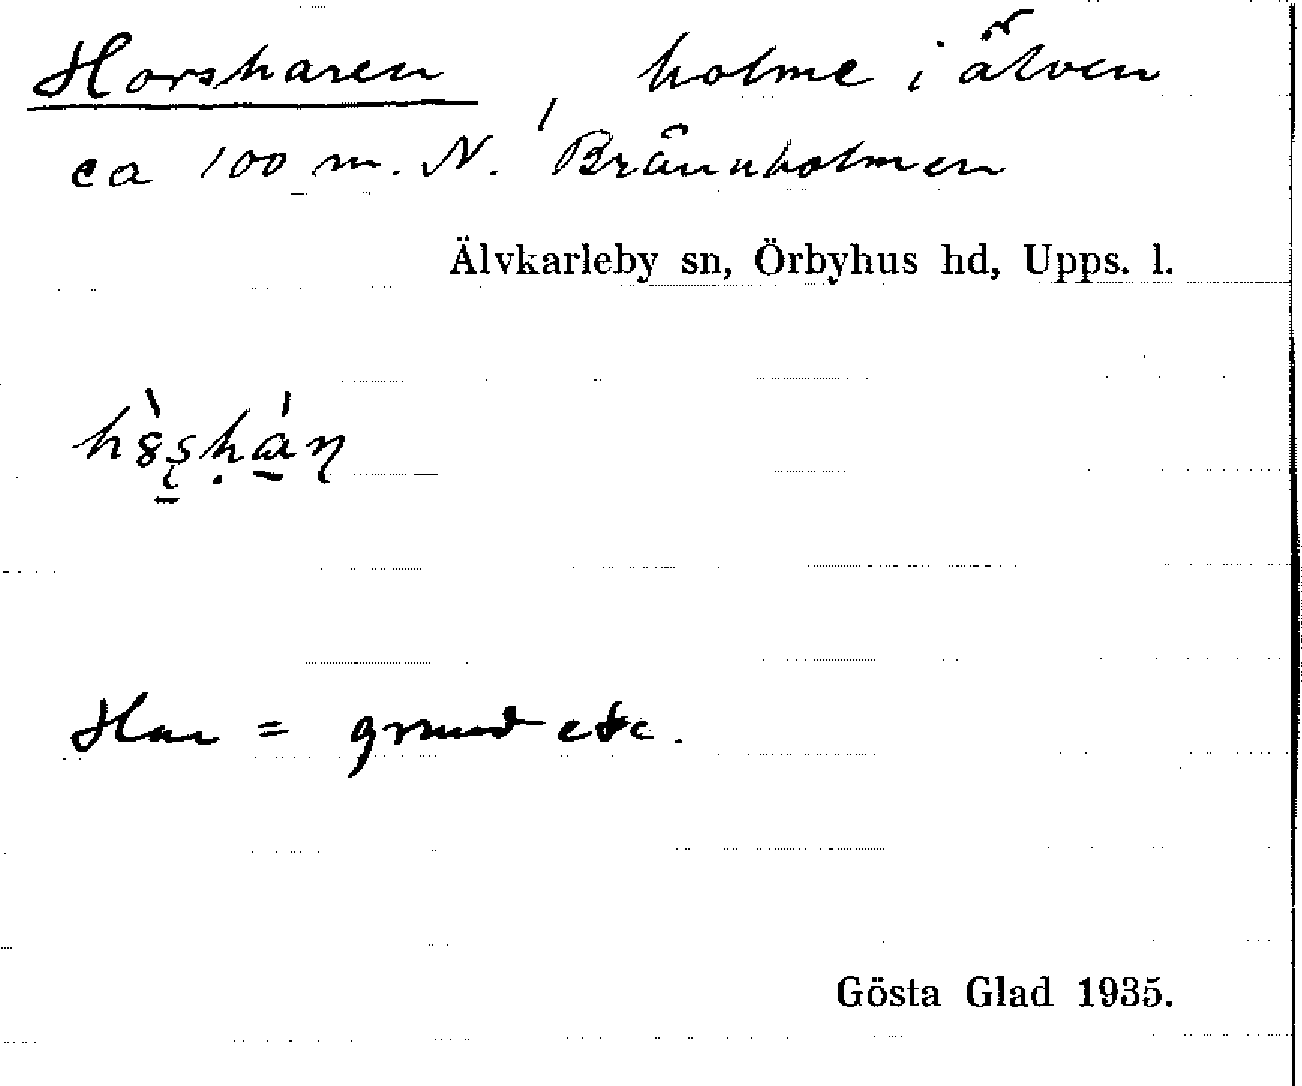 Horsharen, holme i älven
ca 100 m. N. Brännholmen
Älvkarleby sn, Örbyhus hd, Upps. l.
Har = grund etc.
Gösta Glad 1935.